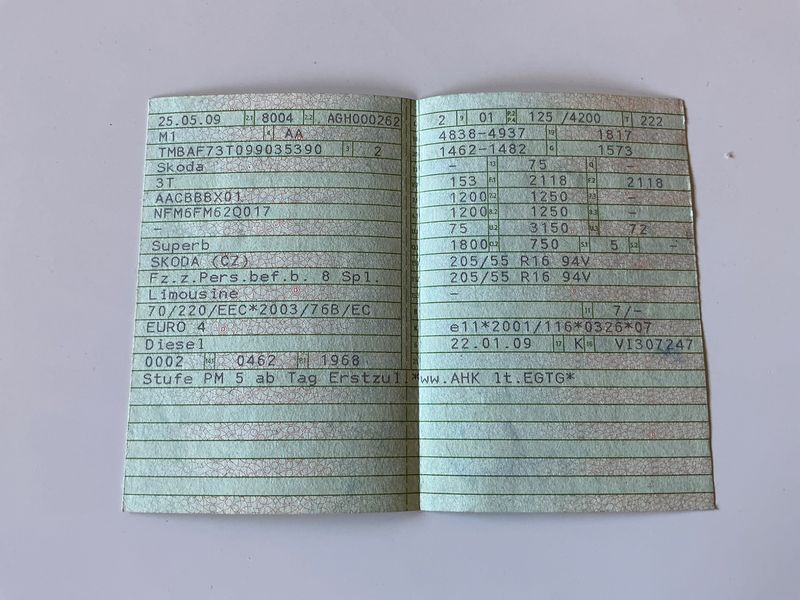 25.05.09 2.1 8004 2.2 AGH000262
M1 4 AA
TMBAF73T099035390 3 2
Skoda
3T
AACBBBX01
NFM6FM62Q017
-
Superb
SKODA (CZ)
Fz.z.Pers.bef.b. 8 Spl.
Limousine
70/220/EEC*2003/76B/EC
EURO 4
Diesel
0002 0462 1968
Stufe PM 5 ab Tag Erstzul.*ww.AHK lt.EGTG*
2 9 01 P.2 P.4 125 /4200 T 222
4838-4937 1817
1462-1482 G 1573
- 13 75 Q -
153 F.1 2118 F.2 2118
1200 1250 -
1200 1250 -
75 U.2 3150 U.3 72
1800 O.2 750 S.1 5 S.2 -
205/55 R16 94V
205/55 R16 94V
-
11 7/-
e11*2001/116*0326*07
22.01.09 17 K 16 VI307247